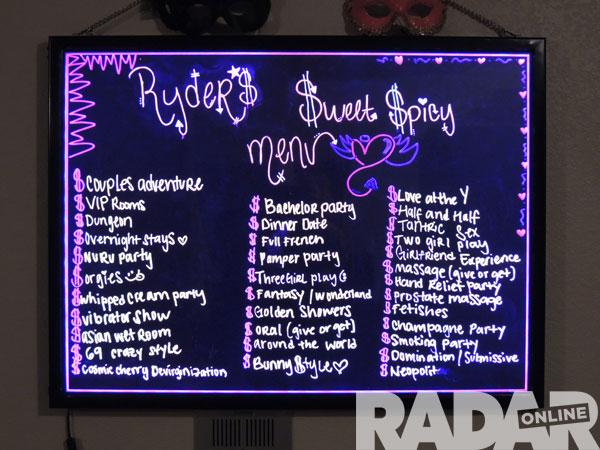 Ryder$ $weet $picy
menu
$ Couples adventure
$ VIP Rooms
$ Dungeon
$ Overnight stays
$ NURU Party
$ orgies
$ whipped cream party
$ vibrator show
$ asian wet Room
$ 69 crazy style
$ cosmic cherry Devirginization
$ Bachelor party
$ Dinner Date
$ Full French
$ Pamper party
$ Three Girl play
$ Fantasy / wonderland
$ Golden Showers
$ oral (give or get)
$ around the world
$ Bunny $tyle
$ Love at the Y
$ Half and Half
$ Tantric Sex
$ Two girl play
$ Girlfriend Experience
$ massage (give or get)
$ Hand Relief party
$ prostate massage
$ Fetishes
$ champagne Party
$ Smoking Party
$ Domination / Submissive
$ Neopolit
RADAR
ONLINE